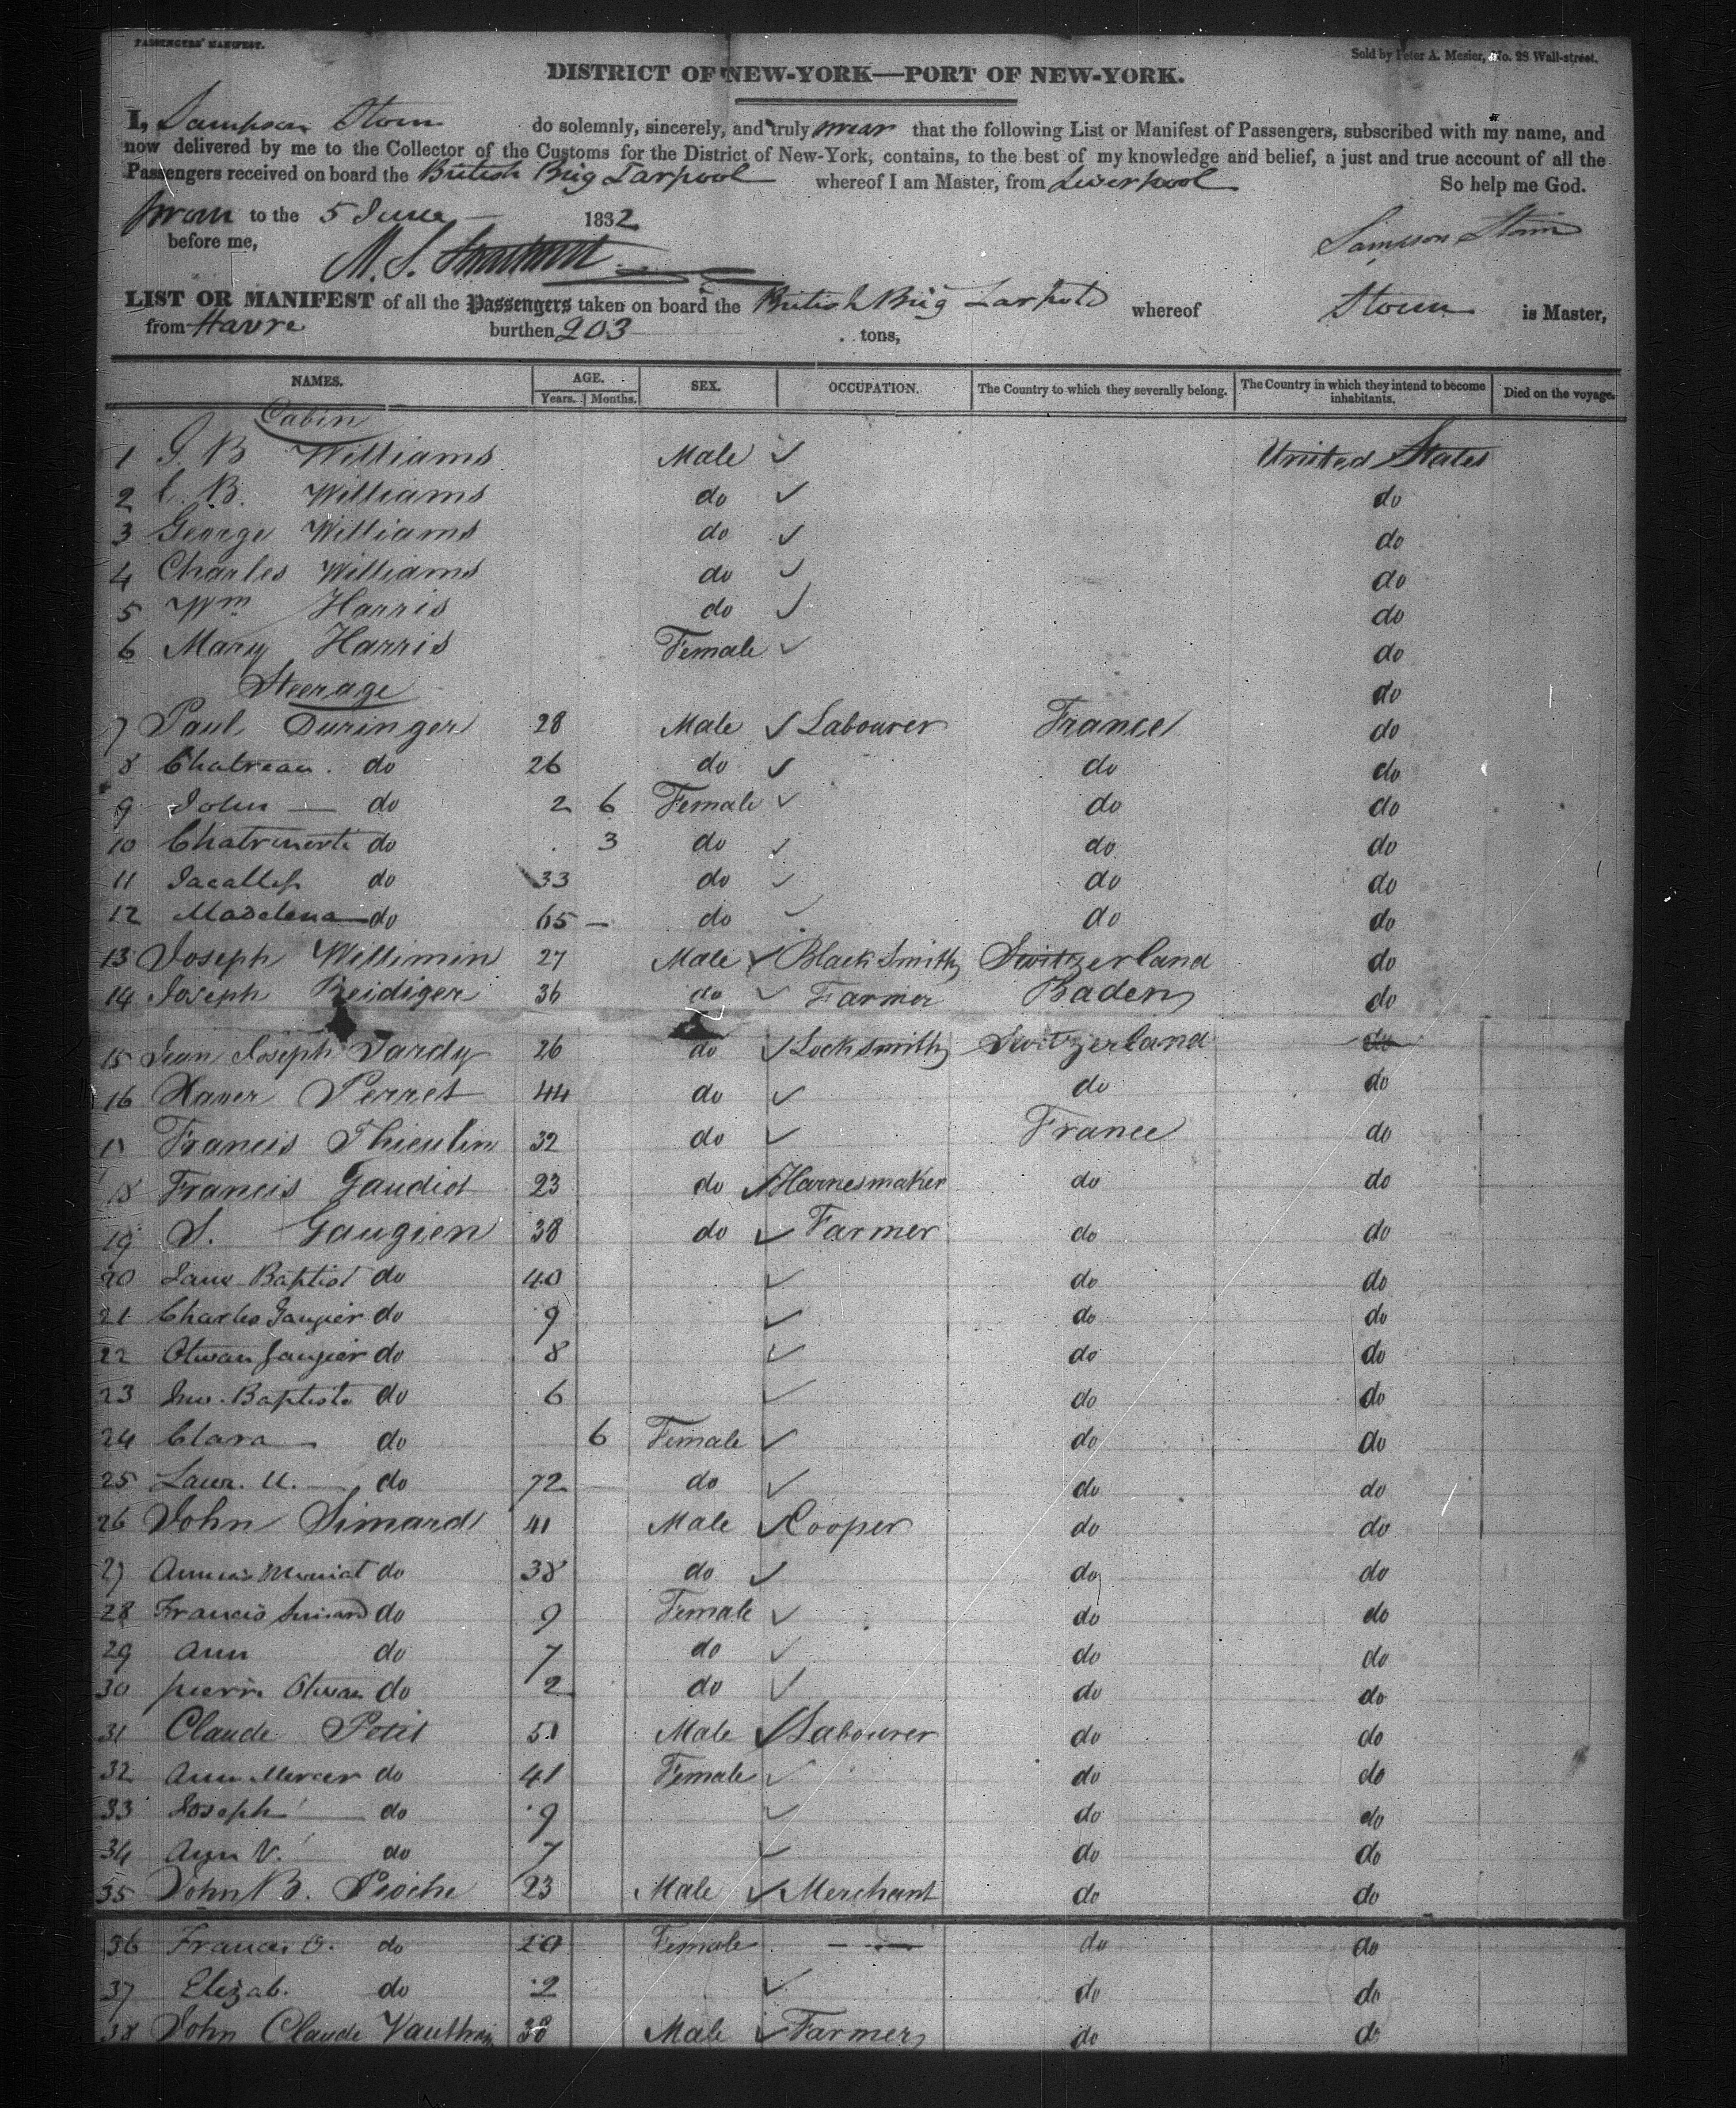 PASSENGERS' MANIFEST.
Sold by Peter A. Mesier, No. 28 Wall-street.
DISTRICT OF NEW-YORK—PORT OF NEW-YORK.
I, Sampson Storm do solemnly, sincerely, and truly swear that the following List or Manifest of Passengers, subscribed with my name, and
now delivered by me to the Collector of the Customs for the District of New-York, contains, to the best of my knowledge and belief, a just and true account of all the
Passengers received on board the British Brig Larpool whereof I am Master, from Liverpool So help me God.
Sworn to the 5 June 1832
before me, Sampson Storm
M. S.
LIST OR MANIFEST of all the Passengers taken on board the British Brig whereof Storm is Master,
from Havre burthen 203 tons,
NAMES. AGE. SEX. OCCUPATION. The Country to which they severally belong. The Country in which they intend to become inhabitants. Died on the voyage.
Years. Months.
Cabin
1 G. B Williams Male ✓ United States
2 C. B. Williams do ✓ do
3 George Williams do ✓ do
4 Charles Williams do ✓ do
5 Wm Harris do ✓ do
6 Mary Harris Female ✓ do
Steerage do
7 Paul Duringer 28 Male ✓ Labourer France do
8 do 26 do ✓ do do
9 John — do 2 6 Female ✓ do do
10 do 3 do ✓ do do
11 do 33 do ✓ do do
12 Madelena — do 65 — do ✓ do do
13 Joseph Willimin 27 Male ✓ Black Smith Switzerland do
14 Joseph Reidiger 36 do ✓ Farmer Baden do
15 Jean Joseph Tardy 26 do ✓ Locksmith Switzerland do
16 Xaver Perret 44 do ✓ do do
17 Francis Thieulin 32 do ✓ France do
18 Francis Gaudiot 23 do ✓ Harnesmaker do do
19 S. Gaugien 38 do ✓ Farmer do do
20 Baptist do 40 ✓ do do
21 Charles Gaugier do 9 ✓ do do
22 Gaugier do 8 ✓ do do
23 Baptiste do 6 ✓ do do
24 Clara — do 6 Female ✓ do do
25 U. — do 72 do ✓ do do
26 John Simard 41 Male ✓ Cooper do do
27 do 38 do ✓ do do
28 Francis Simard do 9 Female ✓ do do
29 Ann do 7 do ✓ do do
30 do 2 do ✓ do do
31 Claude Petit 51 Male ✓ Labourer do do
32 Ann Mercer do 41 Female ✓ do do
33 Joseph — do 9 ✓ do do
34 Ann V. do 7 ✓ do do
35 John B. Pioche 23 Male ✓ Merchant do do
36 do Female — — do do
37 Elizab. do 2 ✓ do do
38 John Claude 38 Male ✓ Farmer do do